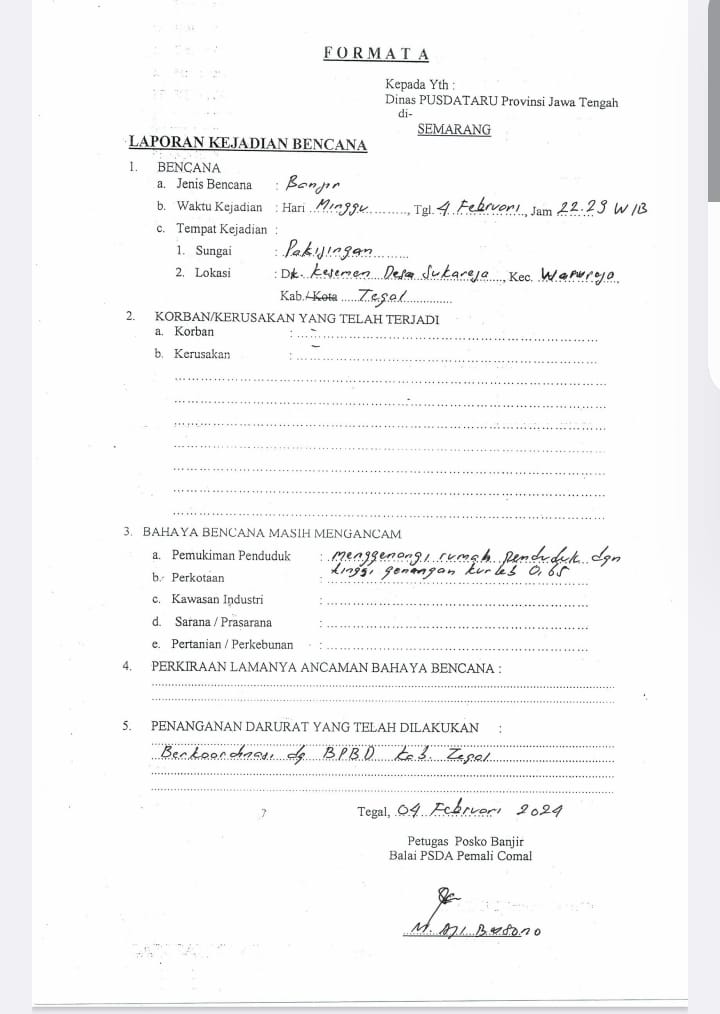 FORMAT A
Kepada Yth :
Dinas PUSDATARU Provinsi Jawa Tengah
di-
SEMARANG
LAPORAN KEJADIAN BENCANA
1. BENCANA
a. Jenis Bencana : Banjir
b. Waktu Kejadian : Hari Minggu, Tgl. 4 Februari, Jam 22.23 WIB
c. Tempat Kejadian :
1. Sungai : Pakijingan
2. Lokasi : Dk. Kesemen Desa Sukareja, Kec. Warureja
Kab./Kota Tegal
2. KORBAN/KERUSAKAN YANG TELAH TERJADI
a. Korban : -
b. Kerusakan : -
3. BAHAYA BENCANA MASIH MENGANCAM
a. Pemukiman Penduduk : menggenangi rumah penduduk dgn
tinggi genangan kurleb 0,65
b. Perkotaan :
c. Kawasan Industri :
d. Sarana / Prasarana :
e. Pertanian / Perkebunan :
4. PERKIRAAN LAMANYA ANCAMAN BAHAYA BENCANA :
5. PENANGANAN DARURAT YANG TELAH DILAKUKAN :
Berkoordinasi dg BPBD Kab. Tegal
Tegal, 04 Februari 2024
Petugas Posko Banjir
Balai PSDA Pemali Comal
M. Aji Baskoro